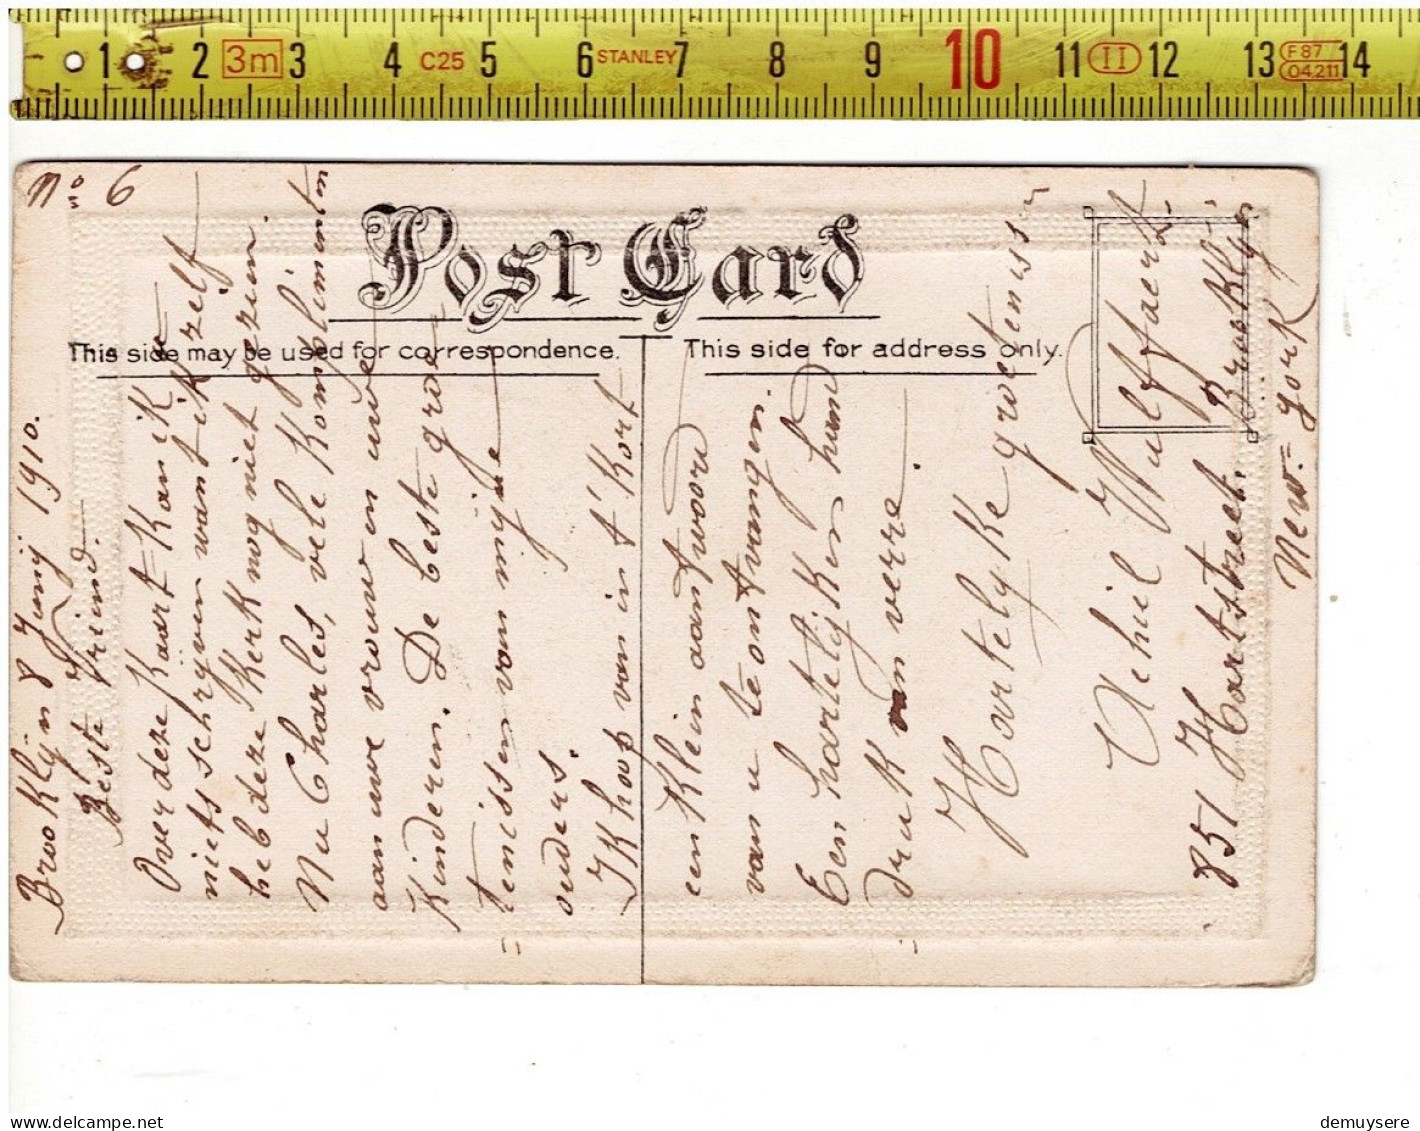 1 2 3m 3 4 C25 5 6 STANLEY 7 8 9 10 11 II 12 13 F87 04.211 14
No 6
Post Card
This side may be used for correspondence.
This side for address only.
Brooklyn 8 Junij 1910.
Beste Vriend.
Over deze Kaart Kan ik U
niets schryven want ik zelf
heb deze Kerk nog niet gezien
Nu Charles, vele Komplimenten
aan uwe vrouw en uwe
Kinderen. De beste groe=
=tenissen van mijne
ouders.
Ik hoop van in t' Kort
een Klein aantwoord
van u te ontvangen.
Een hartelijken hand=
=druk van verre.
Hartelyke groetenissen
Achiel Wulffaert
851 Hartstreet. Brooklyn
New-York
delcampe.net
demuysere